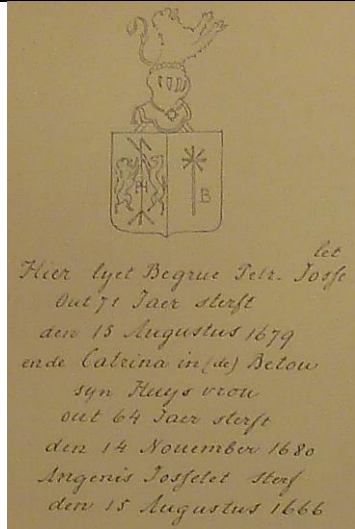 PH
B
let
Hier lyet Begrue Petr. Josse
Out 71 Jaer sterft
den 15 Augustus 1679
ende Catrina in (de) Betou
syn Huys vrou
out 64 Jaer sterft
den 14 November 1680
Angenis Josselet sterf
den 15 Augustus 1666